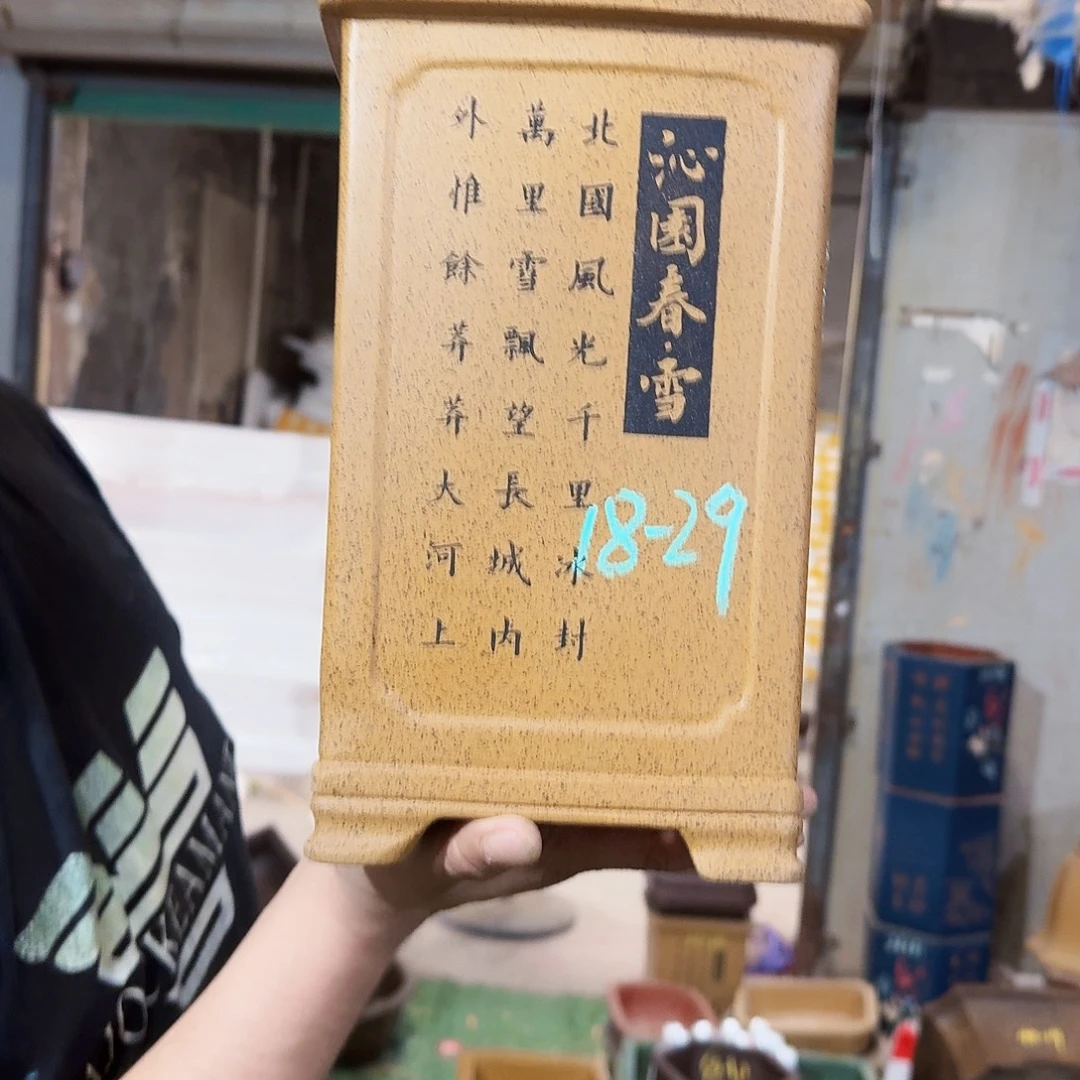 沁園春·雪
北國風光千里冰封
萬里雪飄望長城内
外惟餘莽莽大河上
18-29